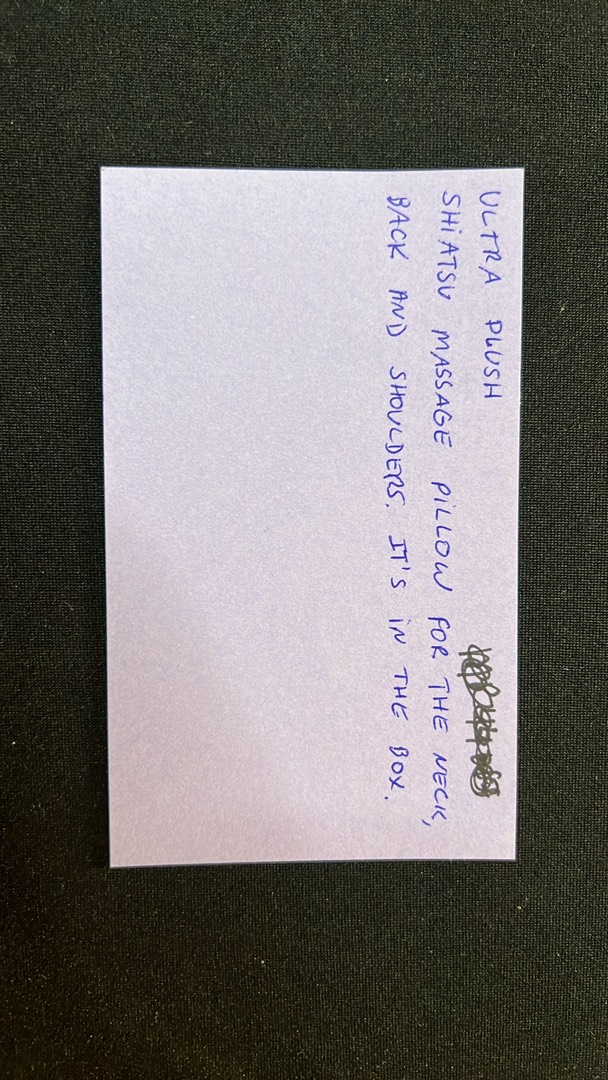 ULTRA PLUSH
SHIATSU MASSAGE PILLOW FOR THE NECK,
BACK AND SHOULDERS. IT'S IN THE BOX.